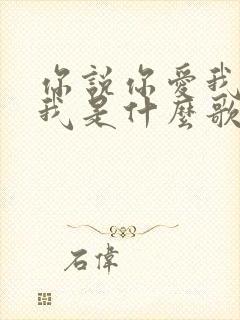 你說你愛我
我是什麼歌
石偉